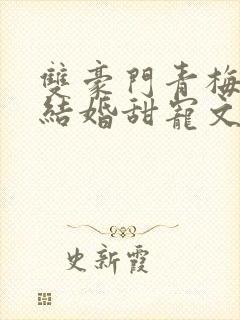 雙豪門青梅
結婚甜寵文
史新霞